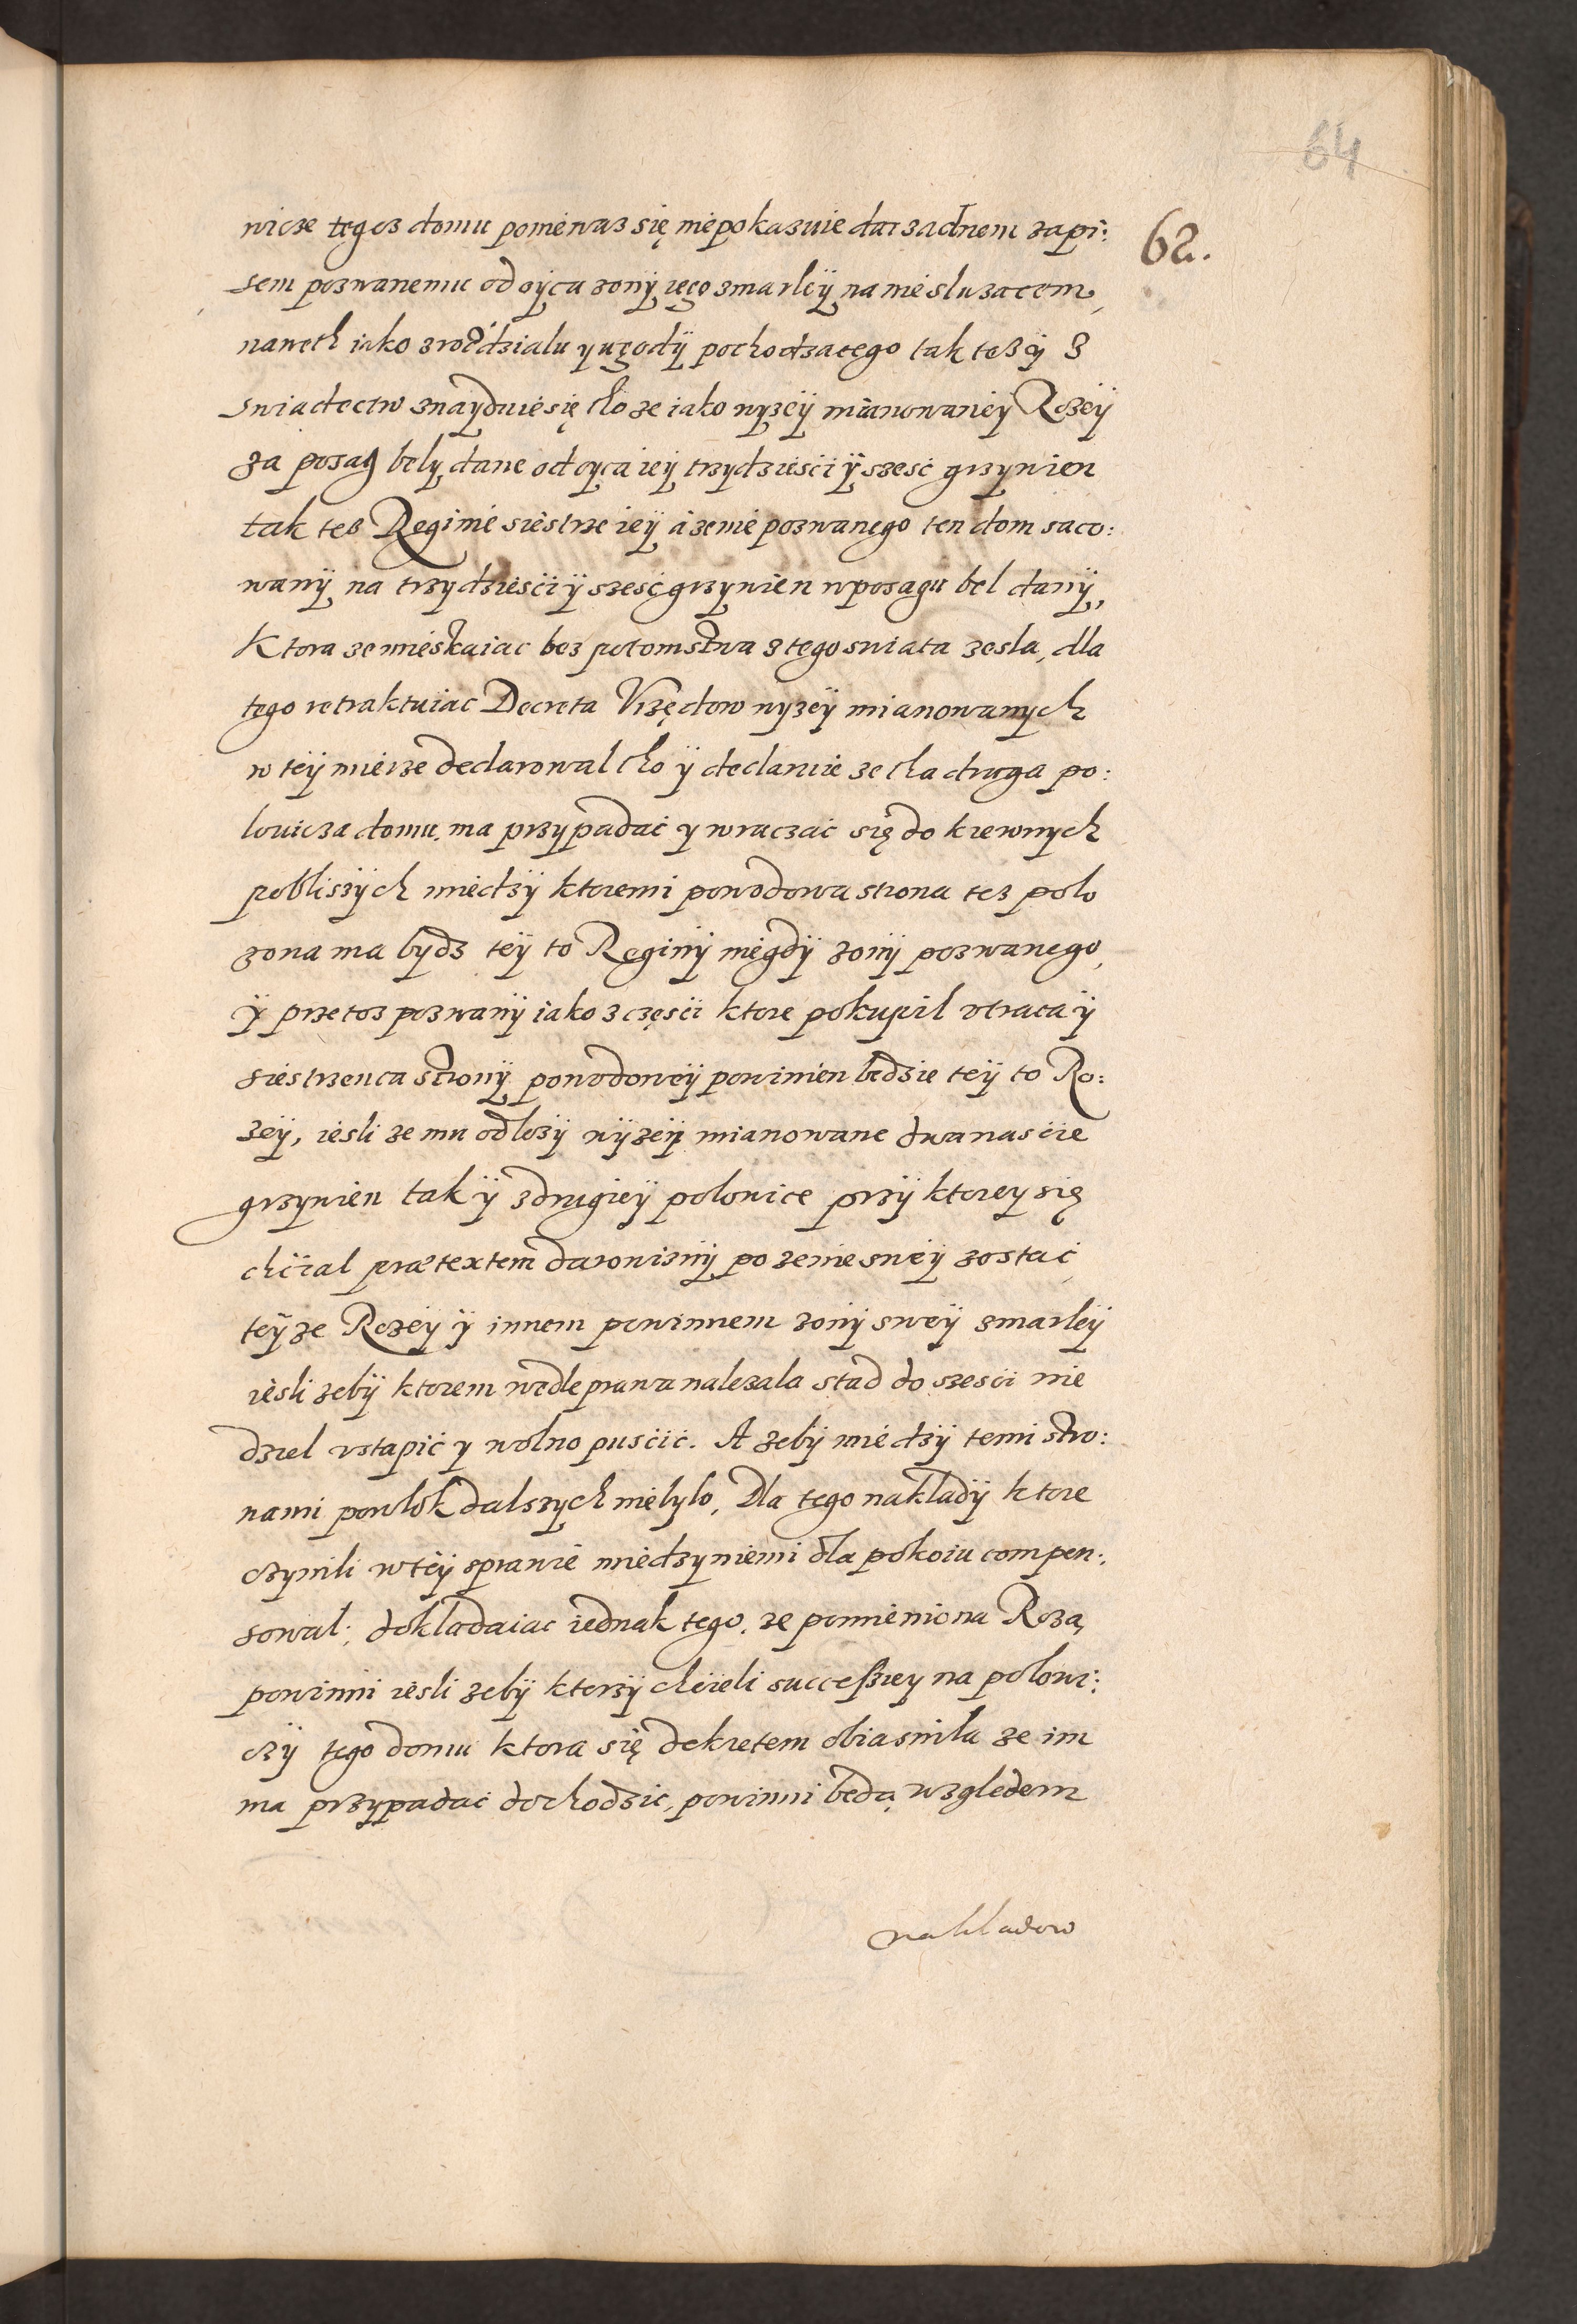 64
62.
nicze tegoz domu poniewaz się niepokazuie dar zadnem zapi:
sem pozwanemu od oyca zony iego zmarley na nie sluzacem,
naweth iako z rozdzialu y ugody pochodzacego tak tezy z
swiadectw znayduie się to ze iako wyzey mianowaney Rozey
za posag bely dane od oyca iey trzydziesci y szesć grzywien
tak tez Reginie siestrze iey a zenie pozwanego ten dom saco:
wany na trzydziesci y szesć grzywien w posagu bel dany,
Ktora ze mieskaiac bez potomstwa z tego swiata zesla, dla
tego retraktuiac Decreta Vrzędow wyzey mianowanych
w tey mierze declarowal to y declaruie ze ta druga po:
lowicza domu ma przypadać y wraczać się do krewnych
pobliszych miedzy ktoremi powodowa strona tez polo
zona ma bydz tey to Reginy niegdy zony pozwanego,
y przetoz pozwany iako z części ktore pokupil vtraca y
siestrzenca strony powodowey powinien bedzie tey to Ro:
zey, iesli ze mu odlozy wyzey mianowane dwanascie
grzywien tak y z drugiey polowice przy ktorey się
chcial praetextem darowizny po zenie swey zostać
teyze Rozey y innem powinnem zony swey zmarley
iesli zeby ktorem wedle prawa nalezala stad do szesci nie
dziel vstapić y wolno puscić. A zeby miedzy temi stro:
nami powlok dalszych niebylo, Dla tego naklady ktore
czynili w tey sprawie miedzy niemi dla pokoiu compen:
sowal; dokladaiac iednak tego, ze pomieniona Roza,
powinni iesli zeby ktorzy chcieli successiey na polowi:
czy tego domu ktora się dekretem obiasnila ze im
ma przypadać dochodzic, powinni beda, względem
nakladow